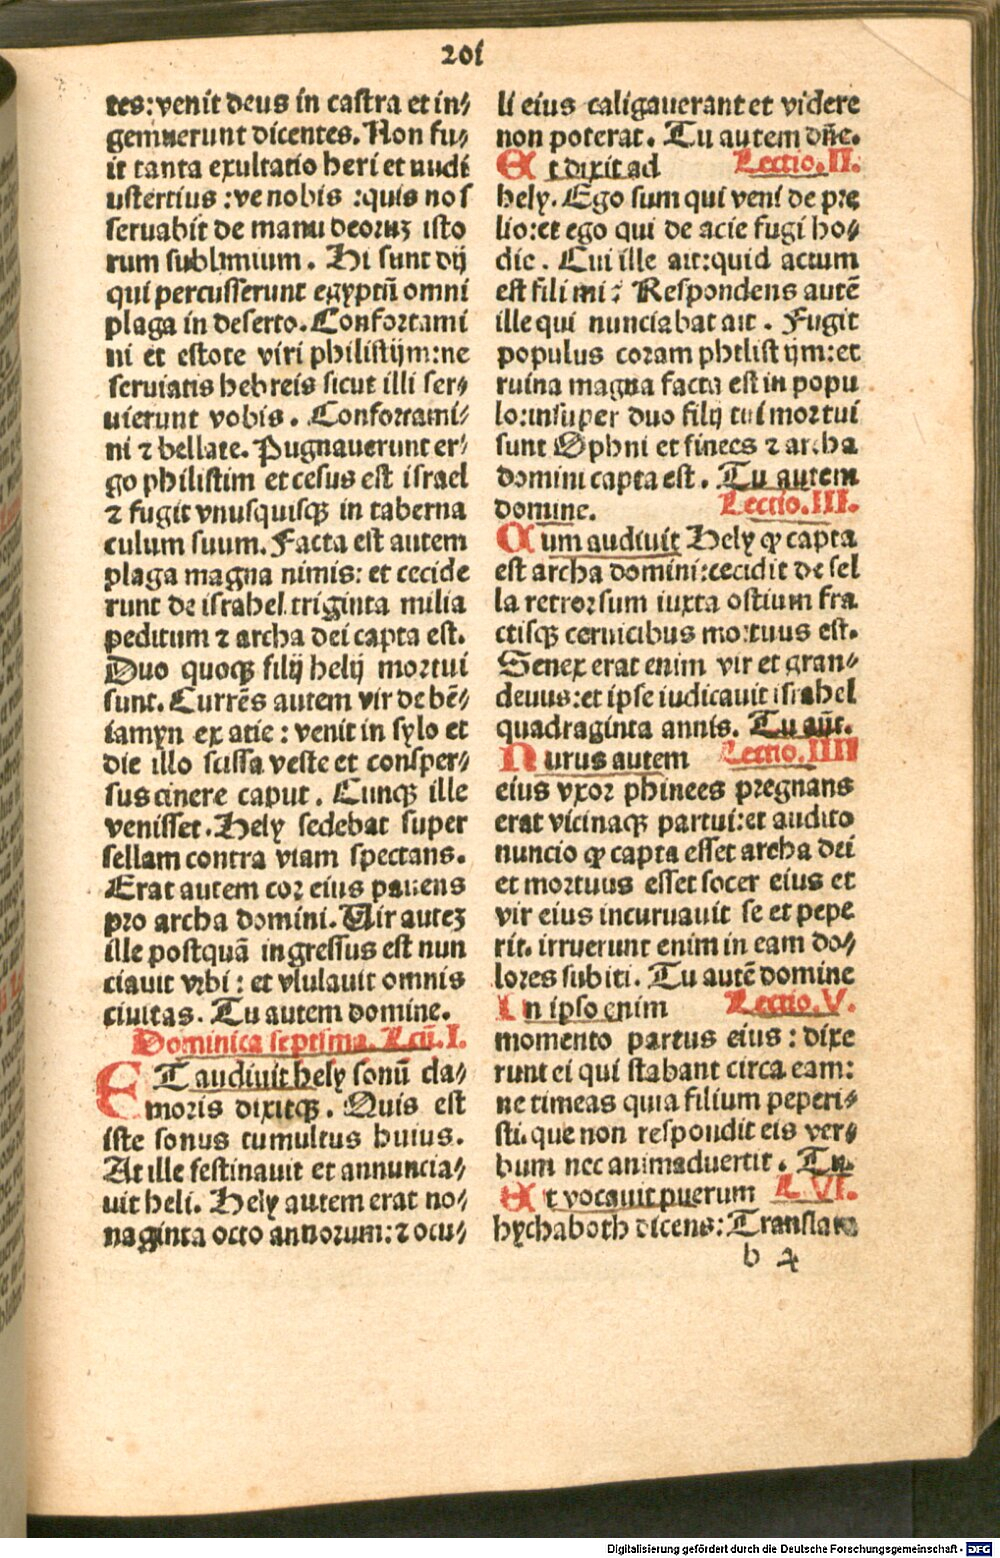 201
tes: venit deus in castra et in⸗
gemuerunt dicentes. Non fu⸗
it tanta exultatio heri et nudi
ustertius :ve nobis :quis nos
seruabit de manu deoruʒ isto
rum sublimium. Hi sunt dij
qui percusserunt egyptū omni
plaga in deserto. Confortami
ni et estote viri philistijm: ne
seruiatis hebreis sicut illi ser⸗
uierunt vobis. Confortami⸗
ni ⁊ bellate. Pugnauerunt er⸗
go philistim et cesus est israel
⁊ fugit vnusquisqꝫ in taberna
culum suum. Facta est autem
plaga magna nimis: et cecide
runt de israhel triginta milia
peditum ⁊ archa dei capta est.
Duo quoqꝫ filij helij mortui
sunt. Currēs autem vir de bē⸗
iamyn ex atie: venit in sylo et
die illo scissa veste et consper⸗
sus cinere caput. Cunqꝫ ille
venisset. Hely sedebat super
sellam contra viam spectans.
Erat autem cor eius pauens
pro archa domini. Uir auteʒ
ille postquā ingressus est nun
ciauit vrbi: et vlulauit omnis
ciuitas. Tu autem domine.
Dominica septima. Lcū. I.
ET audiuit hely sonū cla⸗
moris dixitqꝫ. Quis est
iste sonus tumultus huius.
At ille festinauit et annuncia⸗
uit heli. Hely autem erat no⸗
naginta octo annorum: ⁊ ocu⸗
li eius caligauerant et videre
non poterat. Tu autem dn̄e.
Et dixit ad Lectio. II.
hely. Ego sum qui veni de pre
lio: et ego qui de acie fugi ho⸗
die. Cui ille ait: quid actum
est fili mi? Respondens autē
ille qui nunciabat ait. Fugit
populus coram philistijm: et
ruina magna facta est in popu
lo: insuper duo filij tui mortui
sunt Ophni et finees ⁊ archa
domini capta est. Tu autem
domine. Lectio. III.
Cum audiuit Hely ꝙ capta
est archa domini: cecidit de sel
la retrorsum iuxta ostium fra
ctisqꝫ ceruicibus mortuus est.
Senex erat enim vir et gran⸗
deuus: et ipse iudicauit israhel
quadraginta annis. Tu aūt.
Nurus autem Lectio. IIII
eius vxor phinees pregnans
erat vicinaqꝫ partui: et audito
nuncio ꝙ capta esset archa dei
et mortuus esset socer eius et
vir eius incuruauit se et pepe
rit. irruerunt enim in eam do⸗
lores subiti. Tu autē domine
In ipso enim Lectio. V.
momento partus eius: dixe
runt ei qui stabant circa eam:
ne timeas quia filium peperi⸗
sti. que non respondit eis ver⸗
bum nec animaduertit. Tu.
Et vocauit puerum L VI.
hychaboth dicens: Translata
b 4
Digitalisierung gefördert durch die Deutsche Forschungsgemeinschaft - DFG